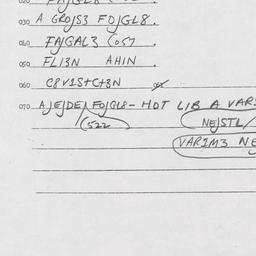 030 A GROJS3 FOJGL8.
040 FAJGAL3 CO57
050 FLI3N AHIN
060 C8V1S+C+3N
070 AJEJDEA FOJGL8- HOT LIB A VAR
(522 NEJSTL/
VARIM3 NE